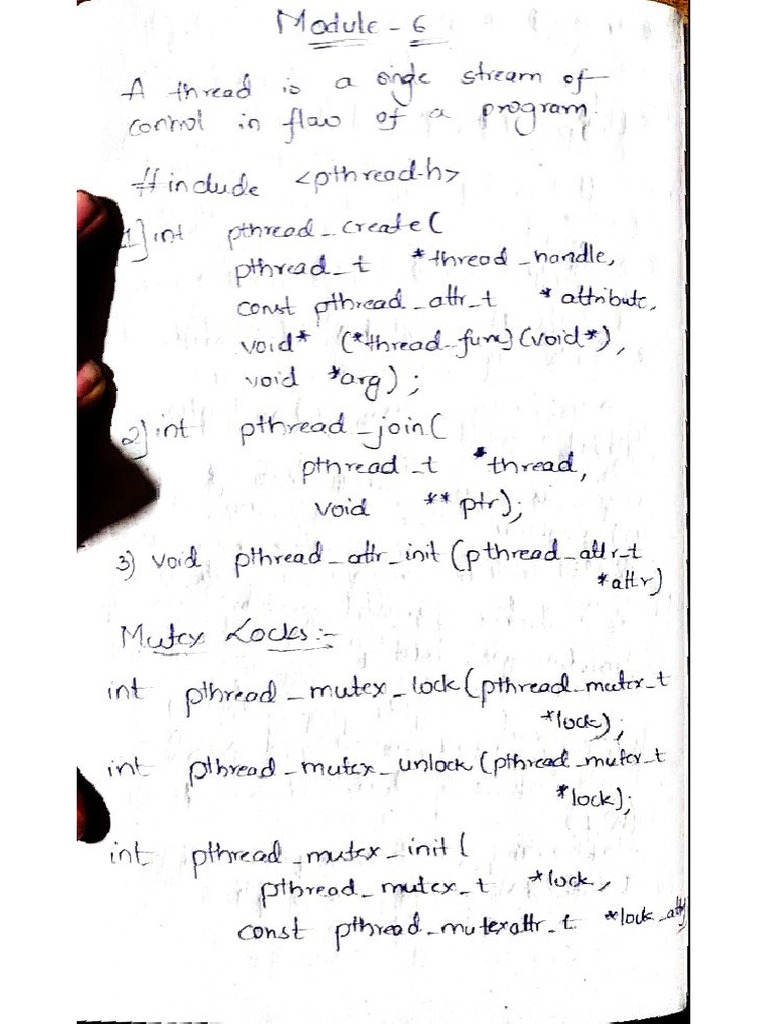 Module - 6
A thread is a single stream of
control in flow of a program.
#include <pthread.h>
1] int pthread_create(
pthread_t *thread_handle,
const pthread_attr_t *attribute,
void* (*thread_func)(void*),
void *arg);
2] int pthread_join(
pthread_t *thread,
void **ptr);
3) void pthread_attr_init (pthread_attr_t
*attr)
Mutex Locks:-
int pthread_mutex_lock(pthread_mutex_t
*lock);
int pthread_mutex_unlock (pthread_mutex_t
*lock);
int pthread_mutex_init(
pthread_mutex_t *lock,
const pthread_mutexattr_t *lock_attr)